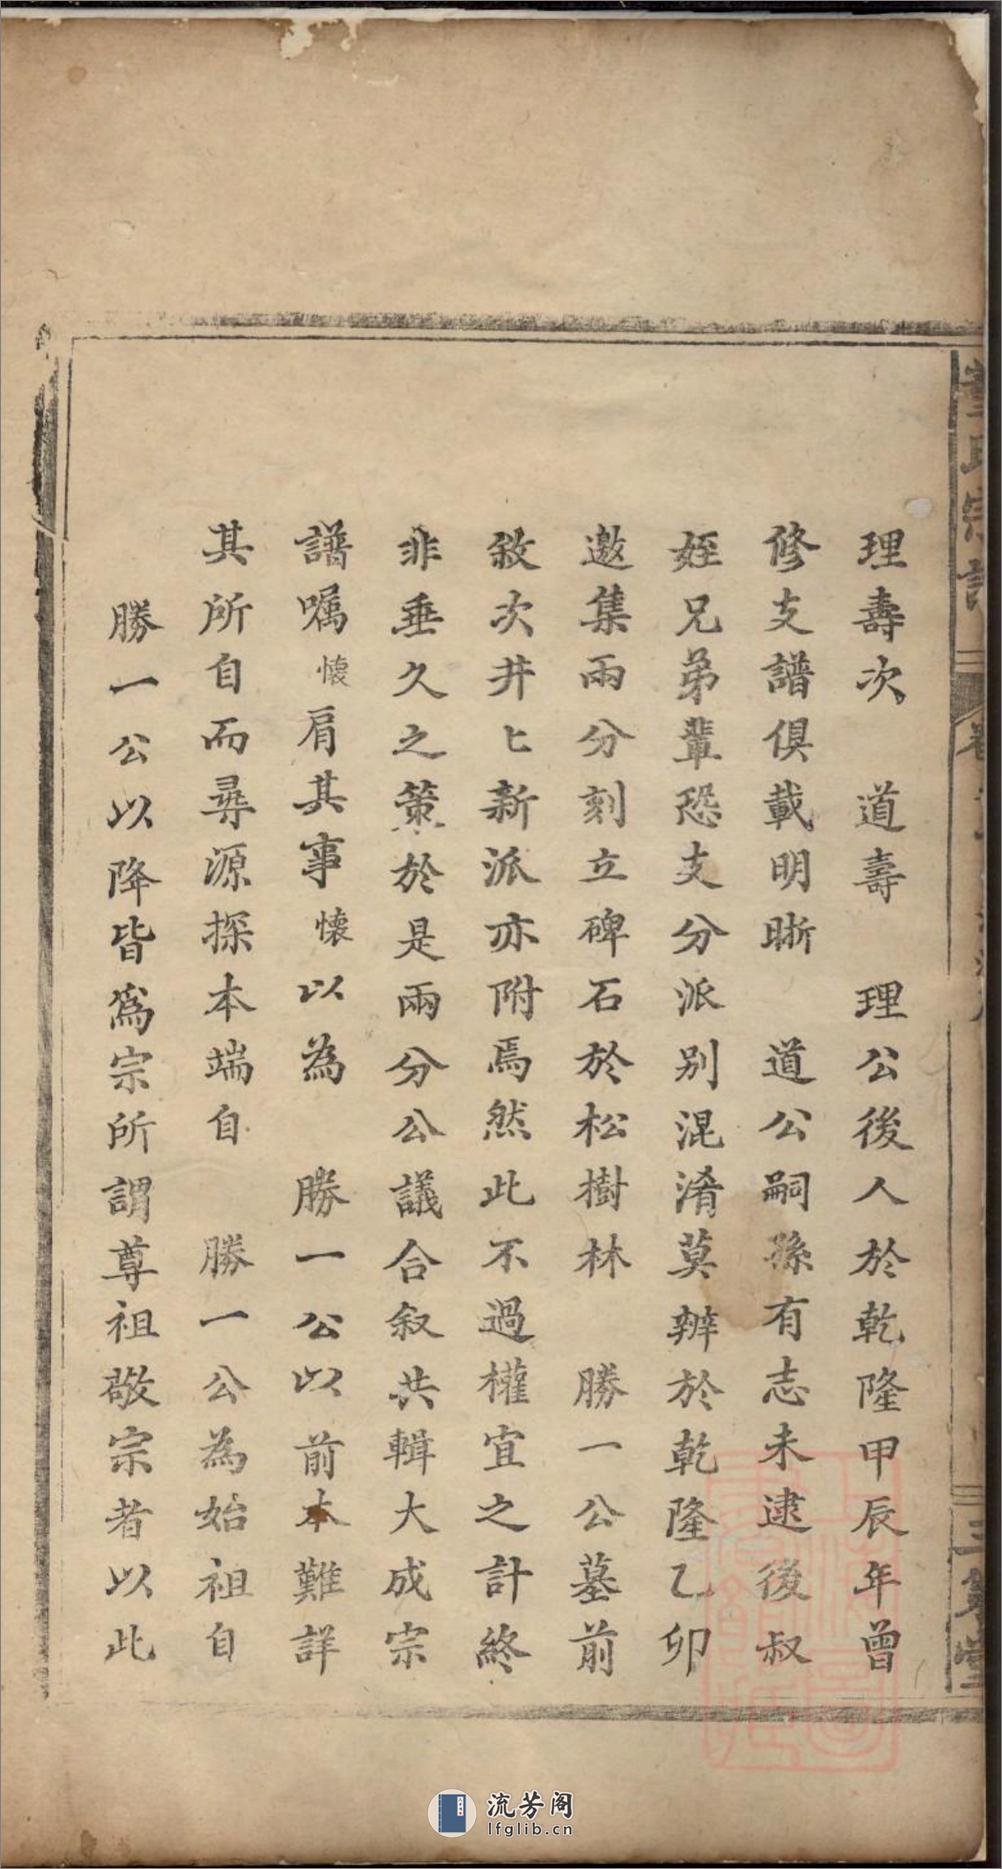 理壽次　道壽　理公後人於乾隆甲辰年曾
修支譜俱載明晰　道公嗣孫有志未逮後叔
姪兄弟輩恐支分派别混淆莫辨於乾隆乙卯
邀集兩分刻立碑石於松樹林　勝一公墓前
敘次井匕新派亦附焉然此不過權宜之計終
非垂久之策於是兩分公議合叙共輯大成宗
譜嘱懷肩其事懷以為　勝一公以前本難詳
其所自而尋源探本端自　勝一公為始祖自
勝一公以降皆爲宗所謂尊祖敬宗者以此
流芳阁
lfglib.cn